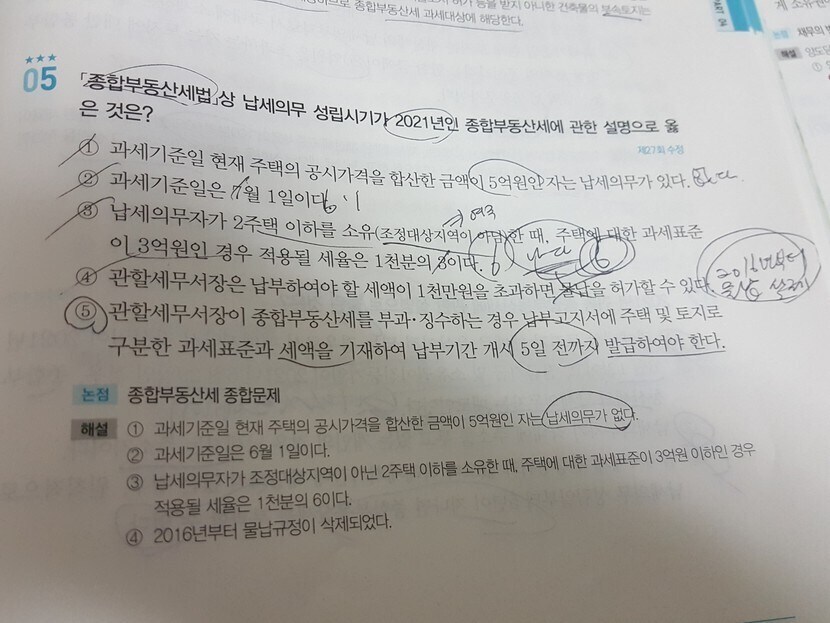 허가 등을 받지 아니한 건축물의 부속토지는
하므로 종합부동산세 과세대상에 해당한다.
PART 04
게 소유권이
논점 채무의 변
해설 양도도
★★★
05
「종합부동산세법」상 납세의무 성립시기가 2021년인 종합부동산세에 관한 설명으로 옳
은 것은?
제27회 수정
① 과세기준일 현재 주택의 공시가격을 합산한 금액이 5억원인 자는 납세의무가 있다. 없다
② 과세기준일은 7월 1일이다. 6
→ 여주
③ 납세의무자가 2주택 이하를 소유(조정대상지역이 아님)한 때, 주택에 대한 과세표준
이 3억원인 경우 적용될 세율은 1천분의 8이다. 6 6
④ 관할세무서장은 납부하여야 할 세액이 1천만원을 초과하면 물납을 허가할 수 있다. 2016년부터
물납 삭제
⑤ 관할세무서장이 종합부동산세를 부과·징수하는 경우 납부고지서에 주택 및 토지로
구분한 과세표준과 세액을 기재하여 납부기간 개시 5일 전까지 발급하여야 한다.
논점 종합부동산세 종합문제
해설 ① 과세기준일 현재 주택의 공시가격을 합산한 금액이 5억원인 자는 납세의무가 없다.
② 과세기준일은 6월 1일이다.
③ 납세의무자가 조정대상지역이 아닌 2주택 이하를 소유한 때, 주택에 대한 과세표준이 3억원 이하인 경우
적용될 세율은 1천분의 6이다.
④ 2016년부터 물납규정이 삭제되었다.